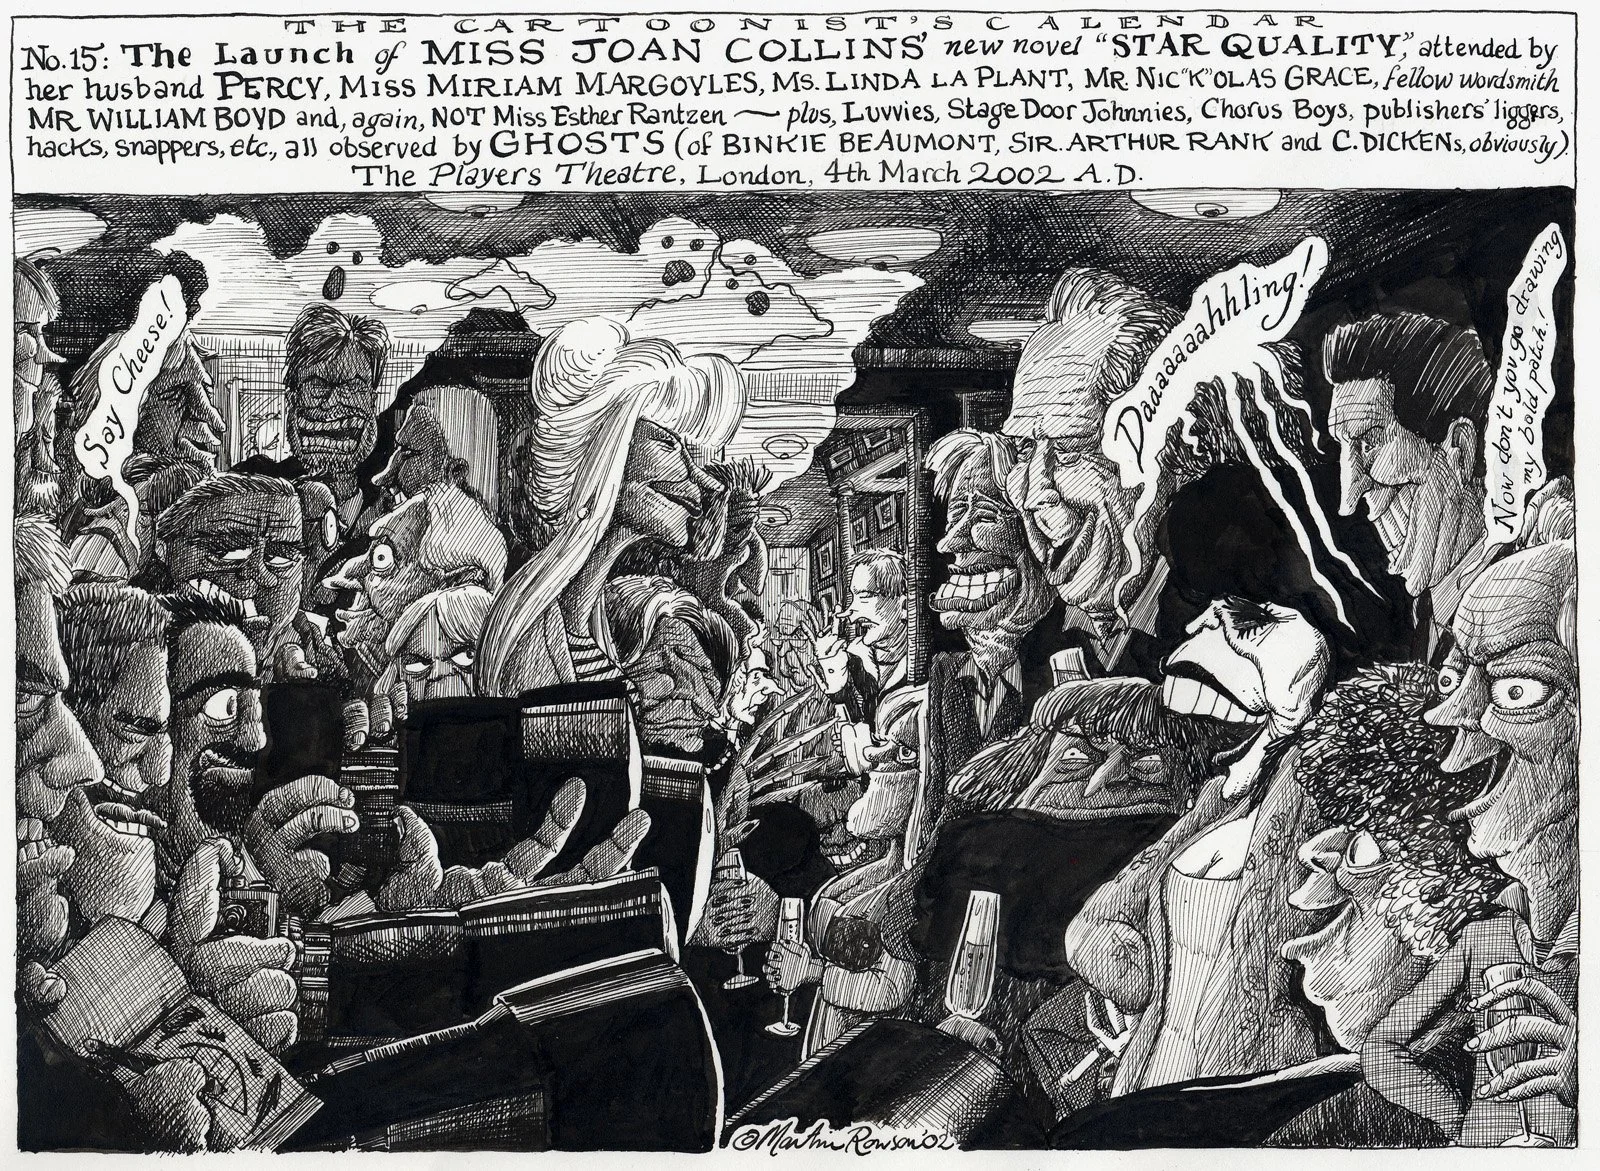 THE CARTOONIST'S CALENDAR
No.15: The Launch of MISS JOAN COLLINS' new novel "STAR QUALITY", attended by
her husband PERCY, MISS MIRIAM MARGOYLES, MS. LINDA LA PLANT, MR. NIC"K"OLAS GRACE, fellow wordsmith
MR WILLIAM BOYD and, again, NOT Miss Esther Rantzen — plus, Luvvies, Stage Door Johnnies, Chorus Boys, publishers' liggers,
hacks, snappers, etc., all observed by GHOSTS (of BINKIE BEAUMONT, SIR. ARTHUR RANK and C. DICKENs, obviously).
The Players Theatre, London, 4th March 2002 A.D.
Say Cheese!
Daaaaaaahhling!
Now don't you go drawing
my bald patch!
©Martin Rowson '02